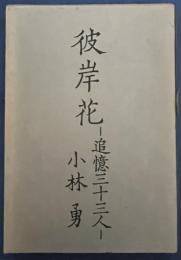 彼岸花
－追憶三十三人－
小林勇